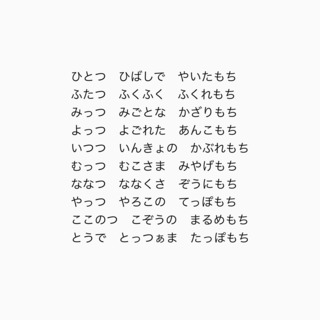 ひとつ　ひばしで　やいたもち
ふたつ　ふくふく　ふくれもち
みっつ　みごとな　かざりもち
よっつ　よごれた　あんこもち
いつつ　いんきょの　かぶれもち
むっつ　むこさま　みやげもち
ななつ　ななくさ　ぞうにもち
やっつ　やろこの　てっぽもち
ここのつ　こぞうの　まるめもち
とうで　とっつぁま　たっぽもち